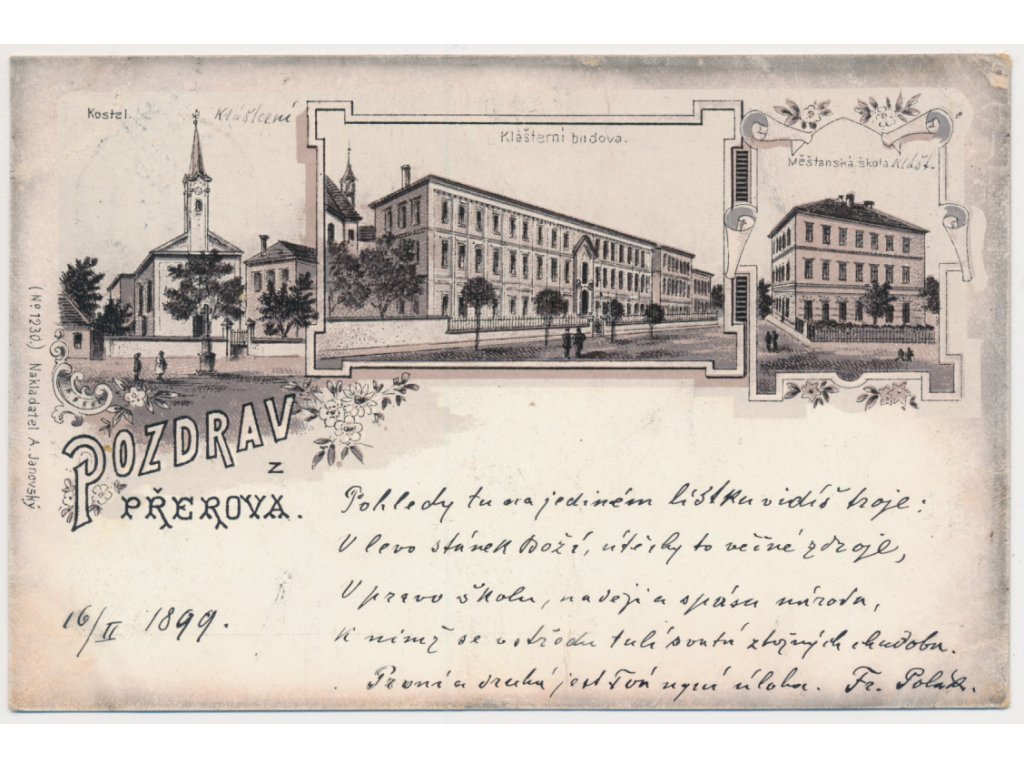 Kostel. Klášterní
Klášterní budova.
Měšťanská škola Klášt.
(Nº 1230.) Nakladatel A. Janovský
POZDRAV
Z
PŘEROVA.
Pohledy tu na jediném lístku vidíš troje:
V levo stánek Boží, útěchy to věčné zdroje,
V pravo školu, naději a spásu národa,
K nimž se v středu tulí svatá zbožných chudoba.
První a druhá jest Tvá nyní úloha. Fr. Polák.
16/II 1899.